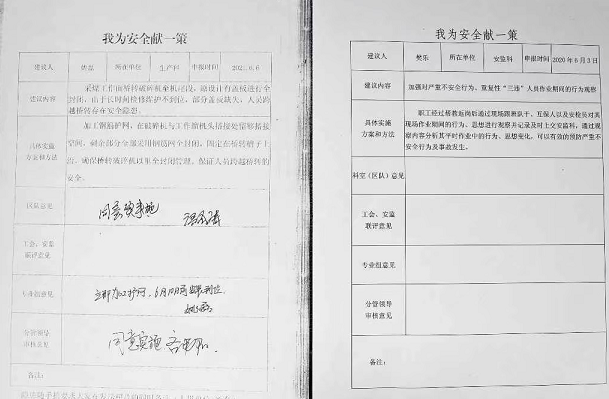 我为安全献一策
建议人
所在单位
生产科
申报时间
202
.6.6
建议内容
采煤工作面桥转破碎机全机尾段，原设计有盖板进行全
封闭，由于长时间检修维护不到位，部分盖板缺失，人员跨
越桥转存在安全隐患。
具体实施
方案和方法
加工钢筋护网，在破碎机与工作溜机头搭接处留够搭接
空间，剩余部分全部采用钢筋网全封闭，固定在桥转槽子上
，确保桥转破碎机以里全封闭管理，保证人员跨越桥转的
安全。
区队意见
同意实施
工会、安监
联评意见
专业组意见
立即加工护网，6月
分管领导
审核意见
同意实施
备注：
我为安全献一策
建议人
所在单位
安监科
申报时间
2020年6月3日
建议内容
加强对严重不安全行为、重复性“三违”人员作业期间的行为观察
具体实施
方案和方法
职工经过帮教返岗后通过现场跟班队干、互保人以及安检员对其
现场作业期间的行为、思想进行观察并记录及时上交安监科，通过观
察内容分析其平时作业中的行为、思想变化，可以有效的预防严重不
安全行为及事故发生。
科室（区队）意见
工会、安监
联评意见
专业组意见
分管领导
审核意见
备注：